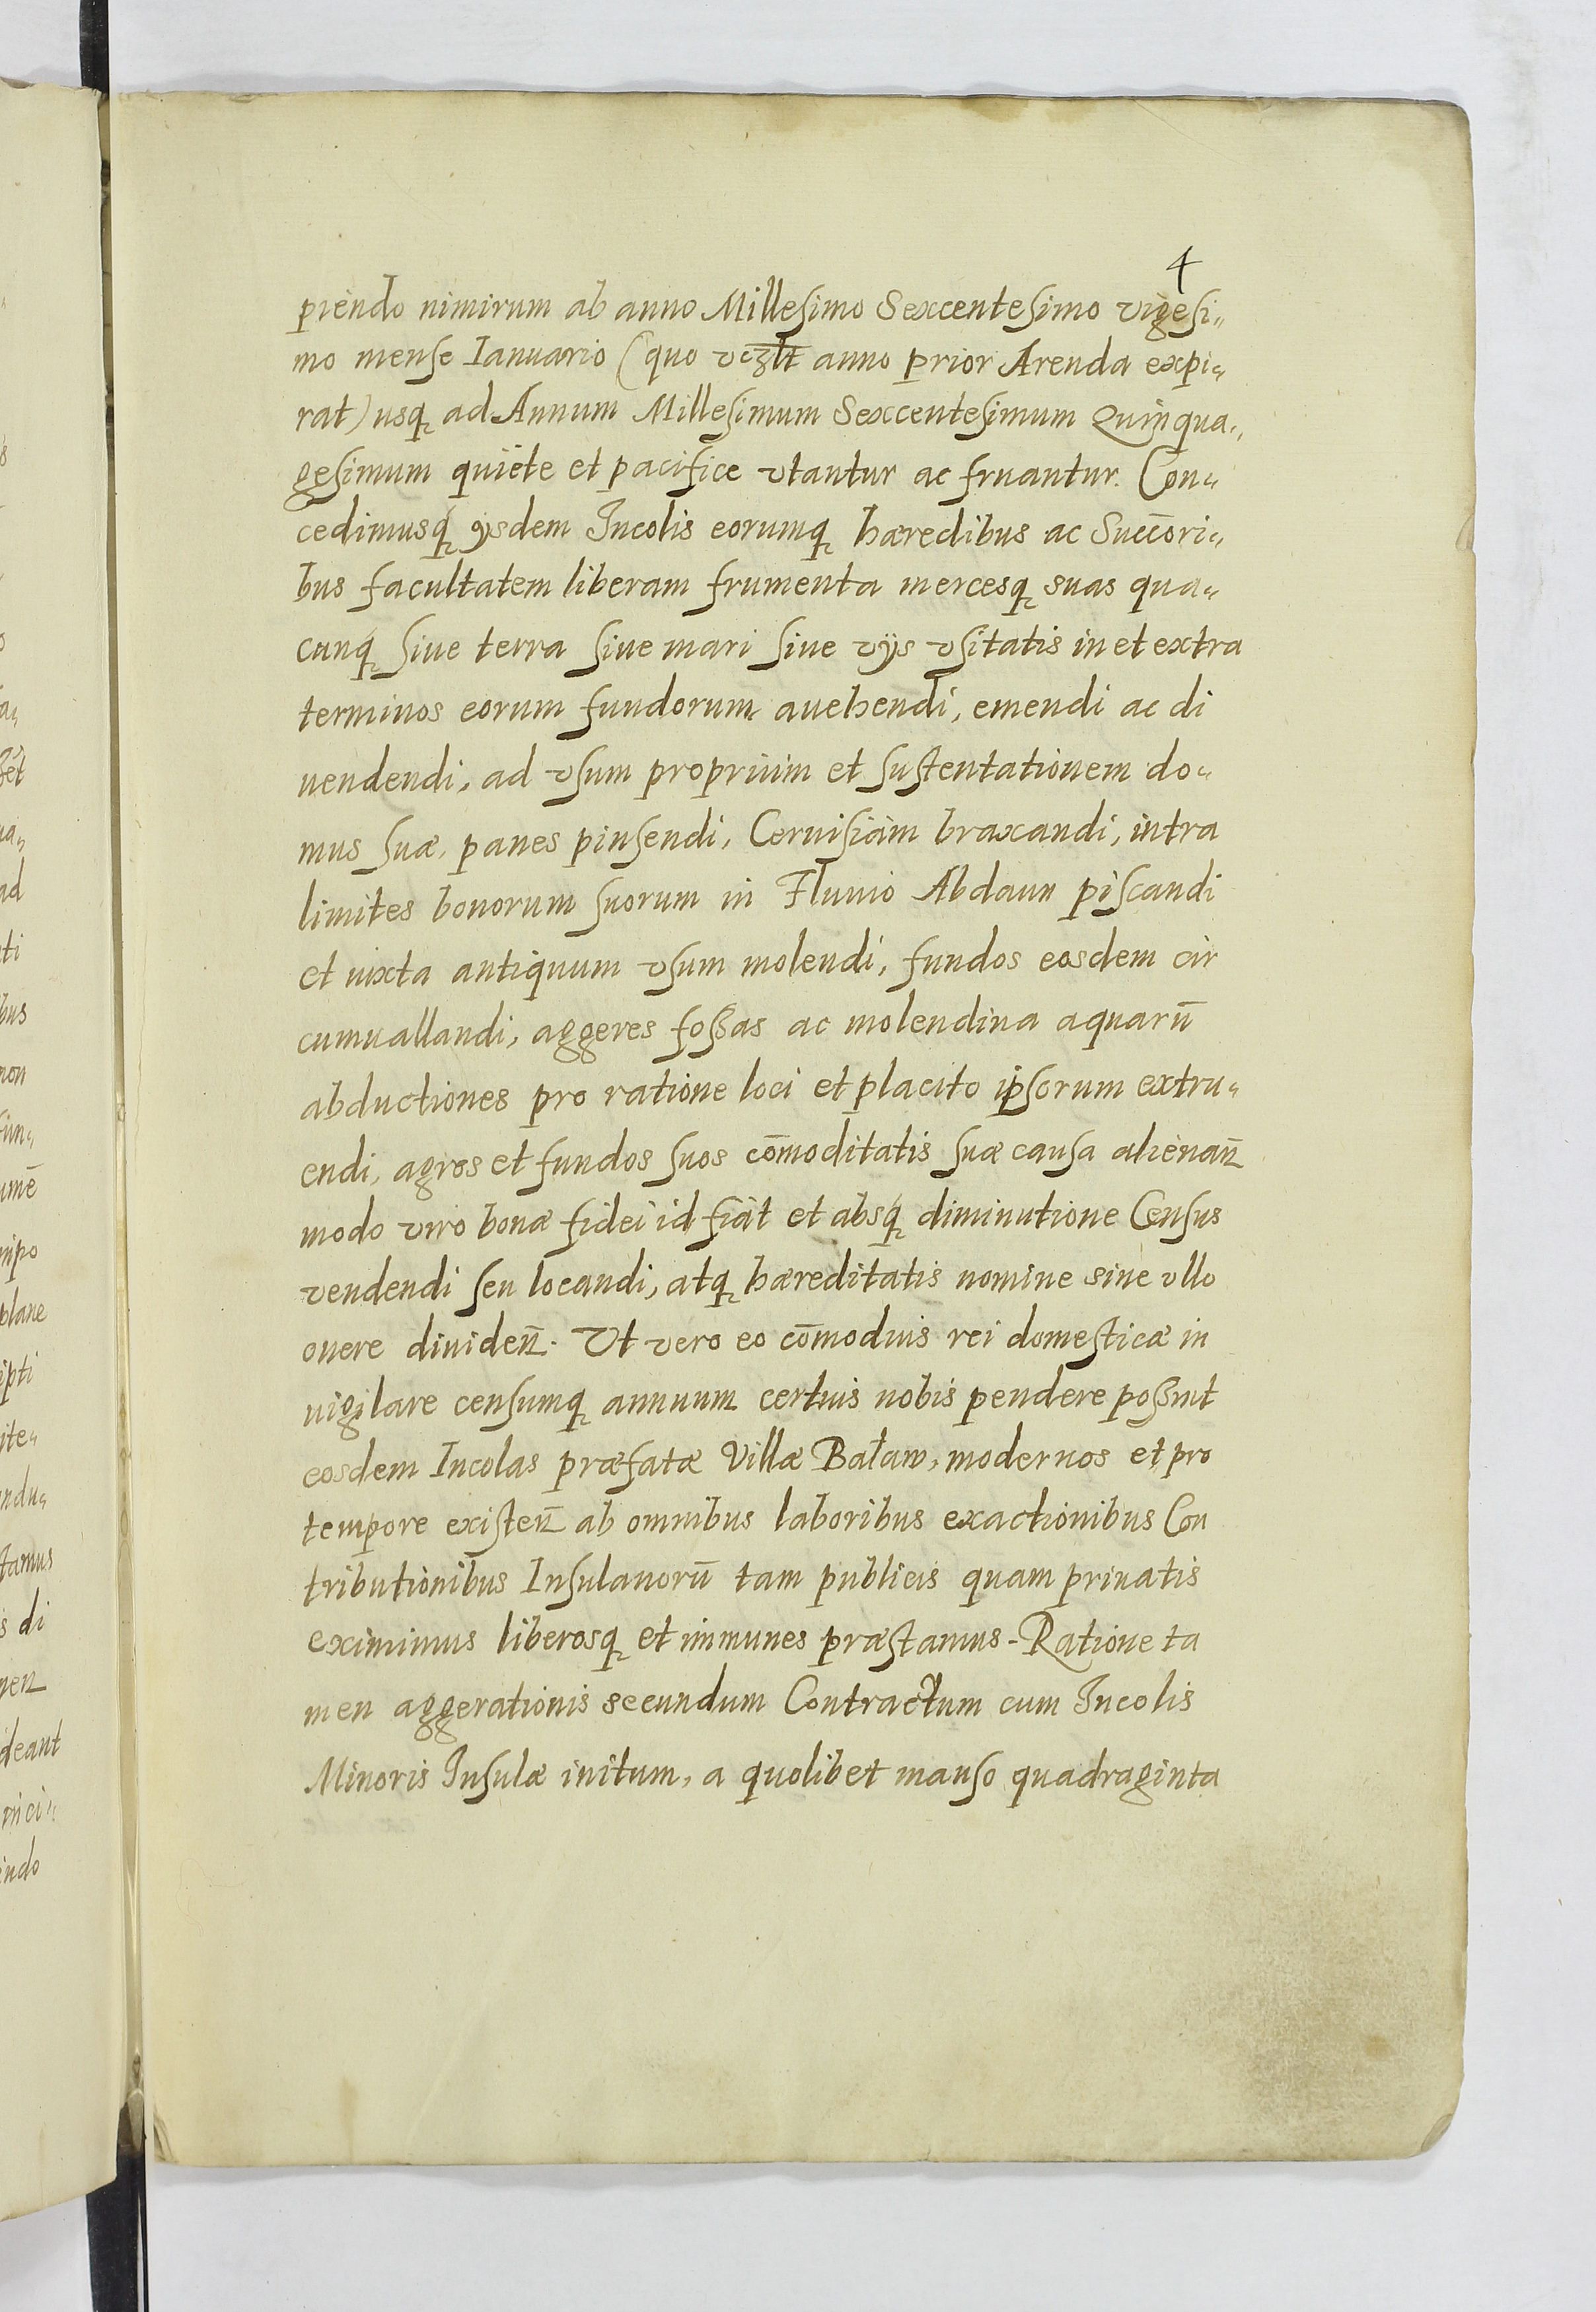 4
piendo nimirum ab anno Millesimo Sexcentesimo vigesi„
mo mense Ianuario (quo anno prior Arenda expi„
rat) usq; ad Annum Millesimum Sexcentesimum Quinqua„
gesimum quiete et pacifice vtantur ac fruantur. Con„
cedimusq; ijsdem Incolis eorumq; hæredibus ac Succōri„
bus facultatem liberam frumenta mercesq; suas qua„
cunq; siue terra siue mari siue vijs vsitatis in et extra
terminos eorum fundorum auehendi, emendi ac di
uendendi, ad vsum proprium et sustentationem do„
mus suæ, panes pinsendi, Ceruisiam braxandi, intra
limites bonorum suorum in Fluuio Abdaun piscandi
et iuxta antiquum vsum molendi, fundos eosdem cir
cumuallandi, aggeres foßas ac molendina aquarū
abductiones pro ratione loci et placito ipsorum extru„
endi, agros et fundos suos cōmoditatis suæ causa alienan̄
modo viro bonæ fidei id fiat et absq; diminutione Census
vendendi seu locandi, atq; hæreditatis nomine sine vllo
onere diuiden̄. Vt vero eo cōmodius rei domesticæ in
uigilare censumq; annuum certius nobis pendere poßint
eosdem Incolas præfatæ Villæ Baław, modernos et pro
tempore existen̄ ab omnibus laboribus exactionibus Con
tributionibus Insulanorū tam publicis quam priuatis
eximimus liberosq; et immunes præstamus. Ratione ta
men aggerationis secundum Contractum cum Incolis
Minoris Insulæ initum, a quolibet manso quadraginta